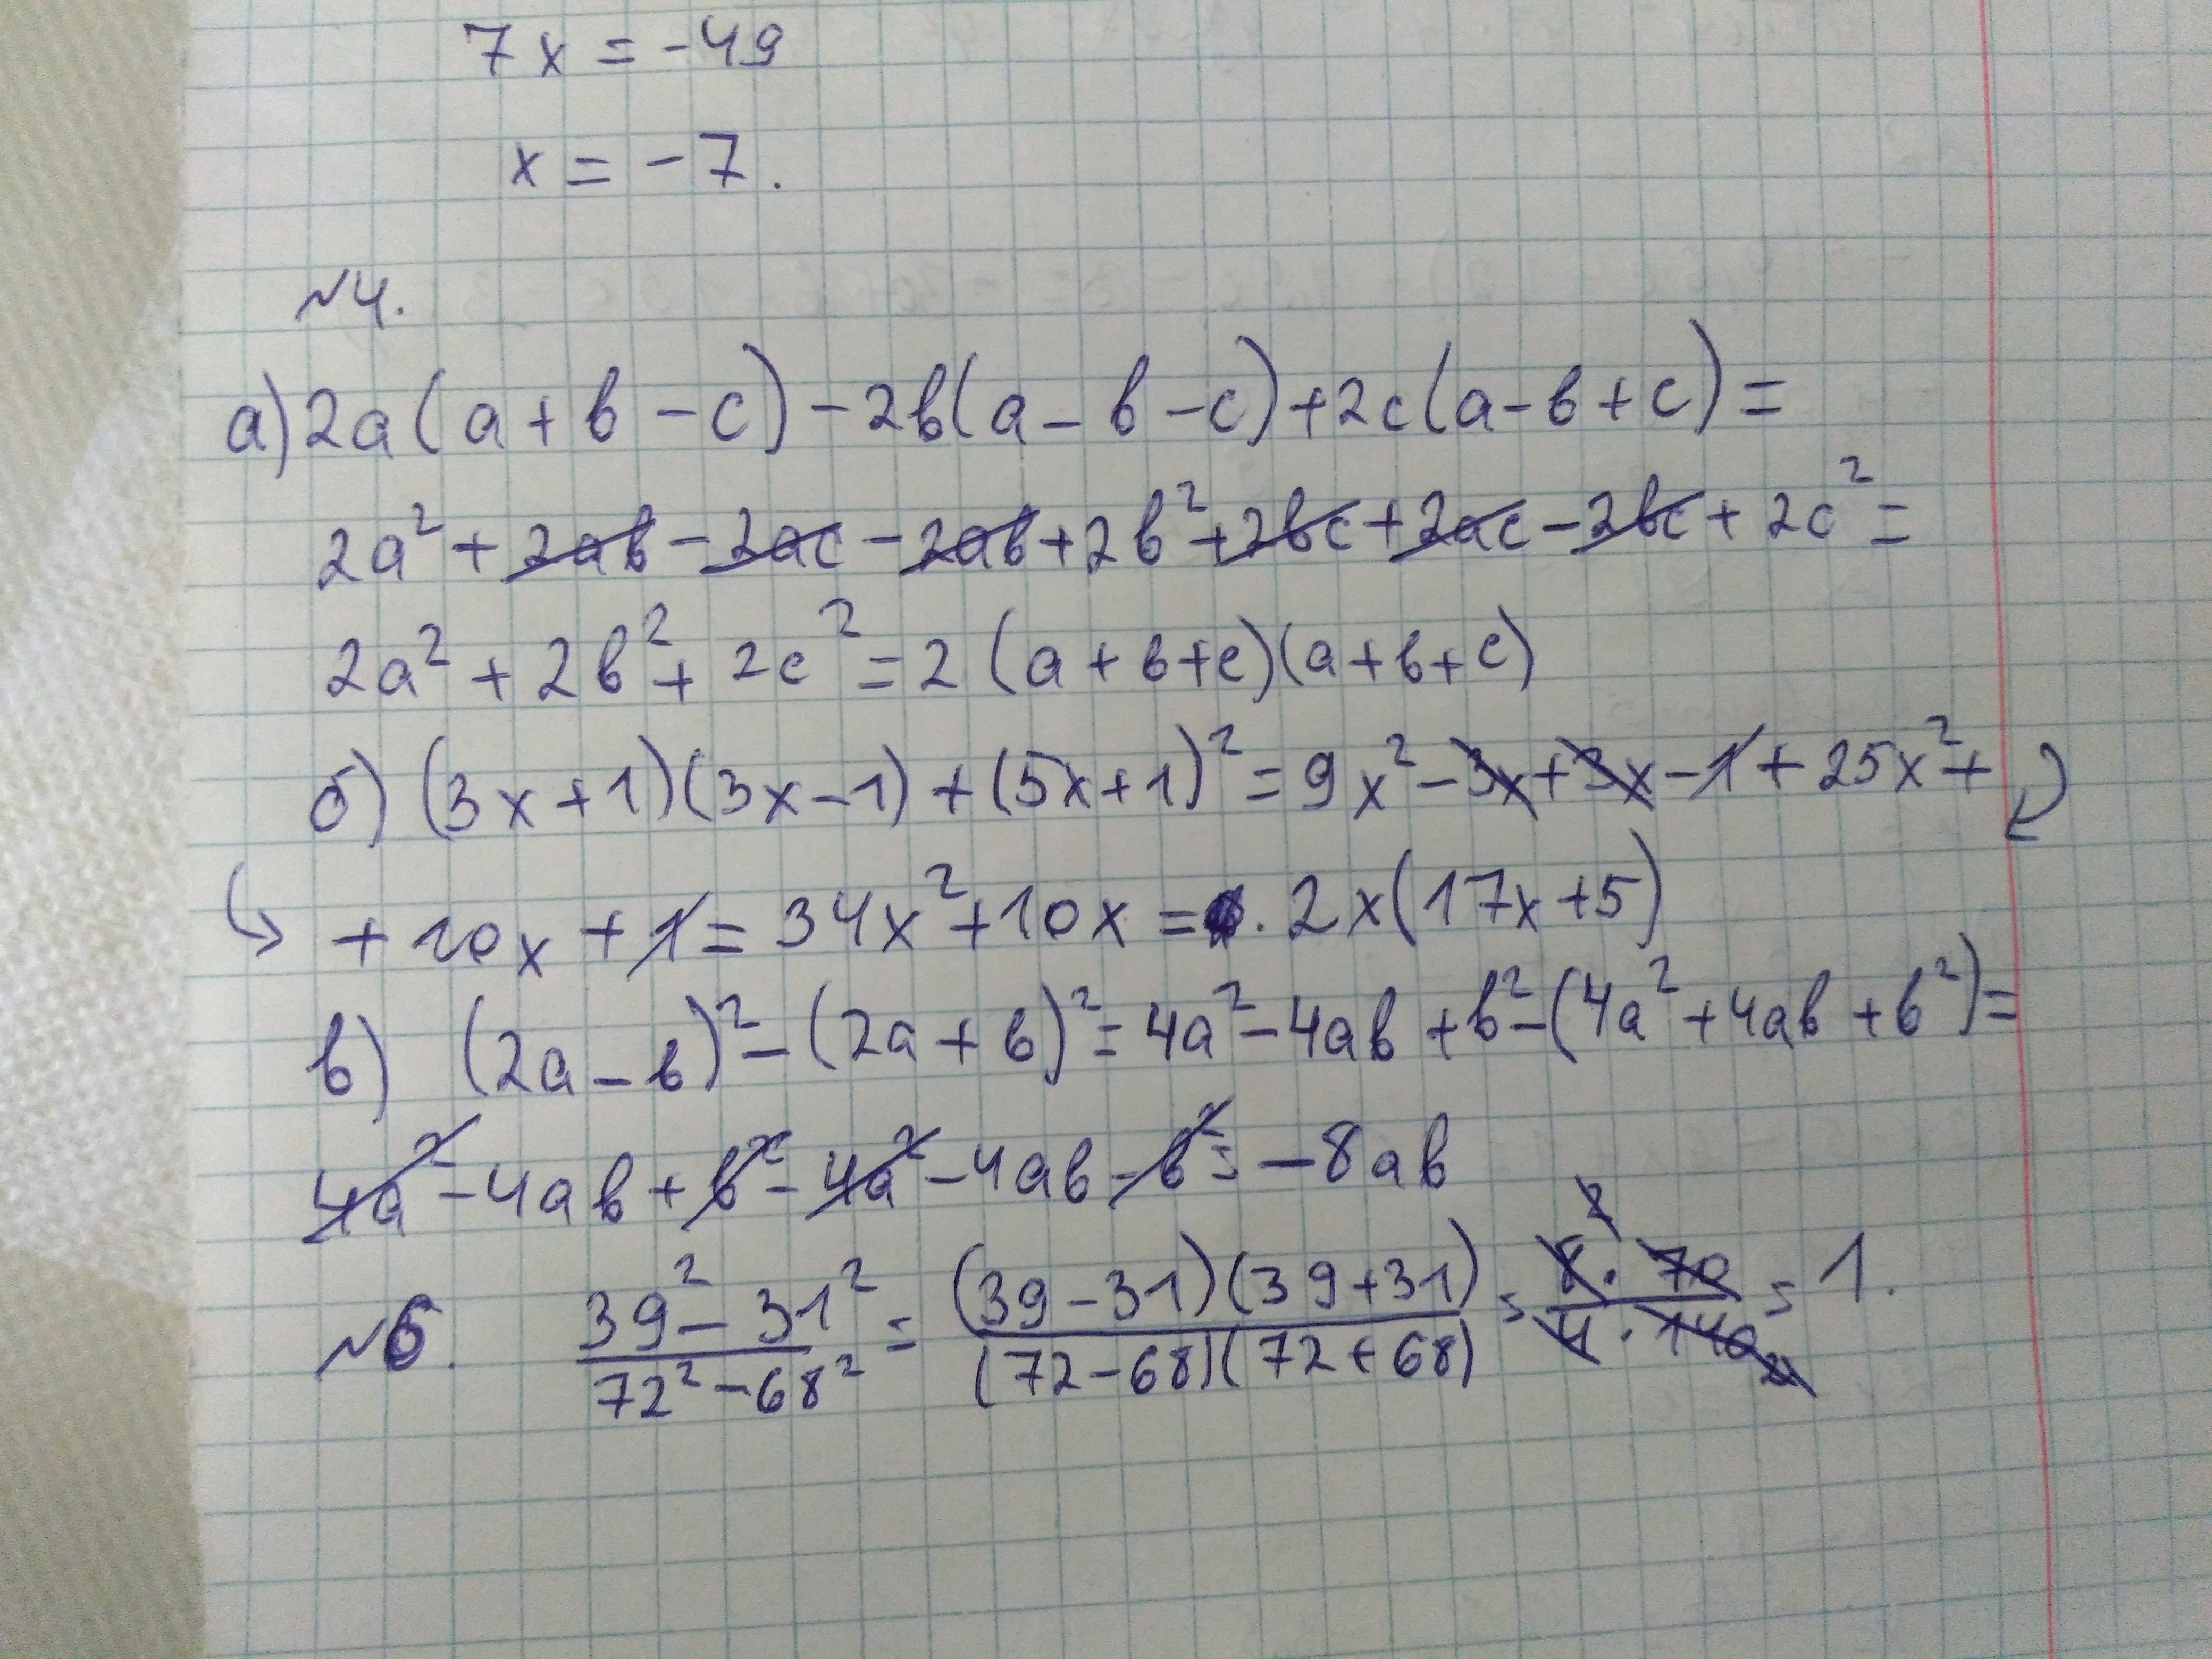 7x = -49
x = -7.
№4.
а) 2a(a+b-c)-2b(a-b-c)+2c(a-b+c)=
2a²+2ab-2ac-2ab+2b²+2bc+2ac-2bc+2c²=
2a²+2b²+2c²=2(a+b+c)(a+b+c)
б) (3x+1)(3x-1)+(5x+1)²=9x²-3x+3x-1+25x²+
+10x+1=34x²+10x=. 2x(17x+5)
в) (2a-b)²-(2a+b)²=4a²-4ab+b²-(4a²+4ab+b²)=
4a²-4ab+b²-4a²-4ab-b²=-8ab
№6. (39²-31²)/(72²-68²)=((39-31)(39+31))/((72-68)(72+68))=(8·70)/(4·140)=1.